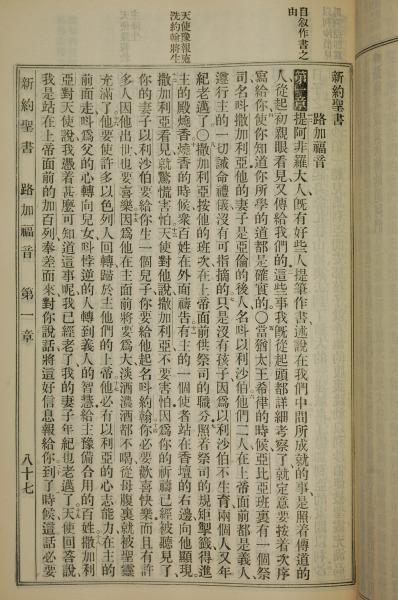 新約聖書
路加福音
第一章提阿非羅大人既有好些人提筆作書述說在我們中間所成就的事是照着傳道的
人從起初親眼看見又傳給我們的這些事我既從起頭都詳細考察了就定意要按着次序
寫給你使你知道你所學的道都是確實的○當猶太王希律的時候亞比亞班裏有一個祭
司名叫撒加利亞他的妻子是亞倫的後人名叫以利沙伯他們二人在上帝面前都是義人
遵行主的一切誡命禮儀沒有可指摘的只是沒有孩子因爲以利沙伯不生育兩個人又年
紀老邁了○撒加利亞按他的班次在上帝面前供祭司的職分照着祭司的規矩掣籤得進
主的殿燒香燒香的時候衆百姓在外面禱告有主的一個使者站在香壇的右邊向他顯現
撒加利亞看見就驚慌害怕天使對他說撒加利亞不要害怕因爲你的祈禱已經被聽見了
你的妻子以利沙伯要給你生一個兒子你要給他起名叫約翰你必要歡喜快樂而且有許
多人因他出世也要喜樂因爲他在主面前將要爲大淡酒濃酒都不喝從母腹裏就被聖靈
充滿了他要使許多以色列人回轉歸於主他們的上帝他必有以利亞的心志能力在主的
前面走叫爲父的心轉向兒女叫悖逆的人轉到義人的智慧給主豫備合用的百姓撒加利
亞對天使說我憑着甚麼可知道這事呢我已經老了我的妻子年紀也老邁了天使回答說
我是站在上帝面前的加百列奉差而來對你說話將這好信息報給你到了時候這話必要
自叙作書之
由
天使豫報施
洗約翰將生
新約聖書 路加福音 第一章 八十七